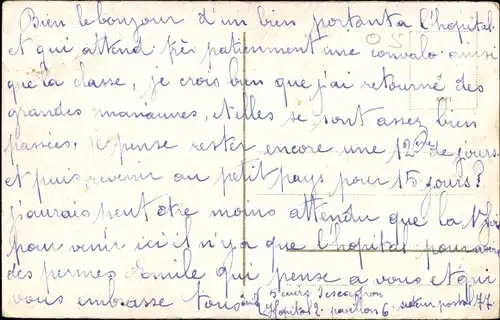 Bien le bonjour d'un bien portant a l'hopital.
et qui attend très patienment une convalo ainsi
que la classe, je crois bien que j'ai retourné des
grandes manœuvres, Nelles se sont assez bien
passées, je pense rester encore une 12ne de jours
et puis revenir au petit pays pour 15 jours?
j'aurais peut être moins attendu que la
pour venir ici il n'y a que l'hopital pour avoir
des permes Emile qui pense a vous et qui
vous embrasse tous
Hopital 2 pavillon 6 secteur postal 77